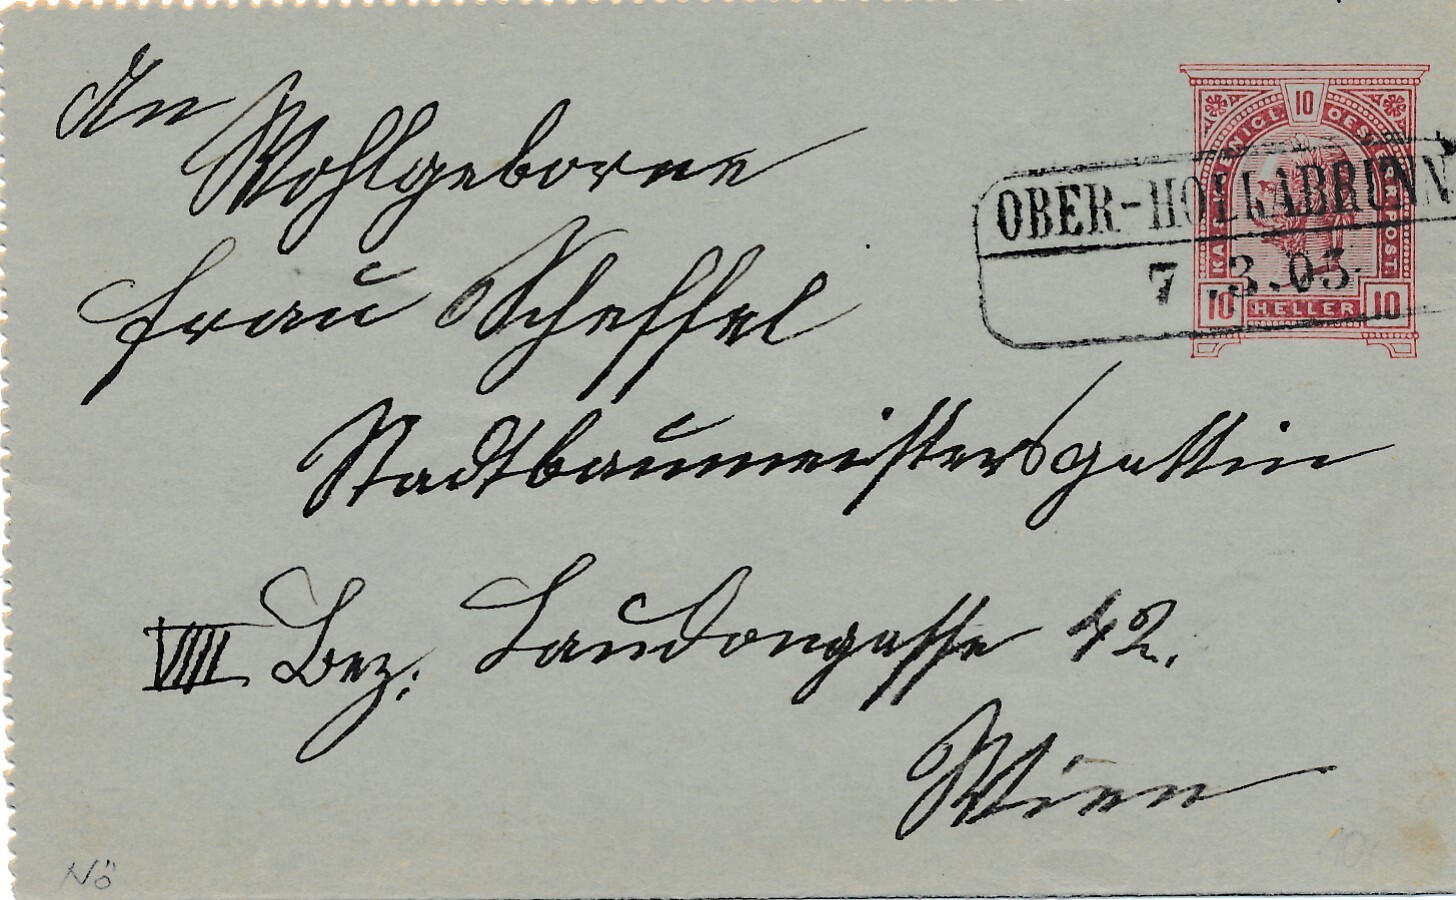 An
Wohlgeborne
Frau Scheffel
Stadtbaumeistersgattin
VIII Bez: Laudongasse 42.
Wien
10
KAIS. KOENIGL. OESTERR. POST.
10 HELLER 10
OBER-HOLLABRUNN
7.3.05
Nö
10